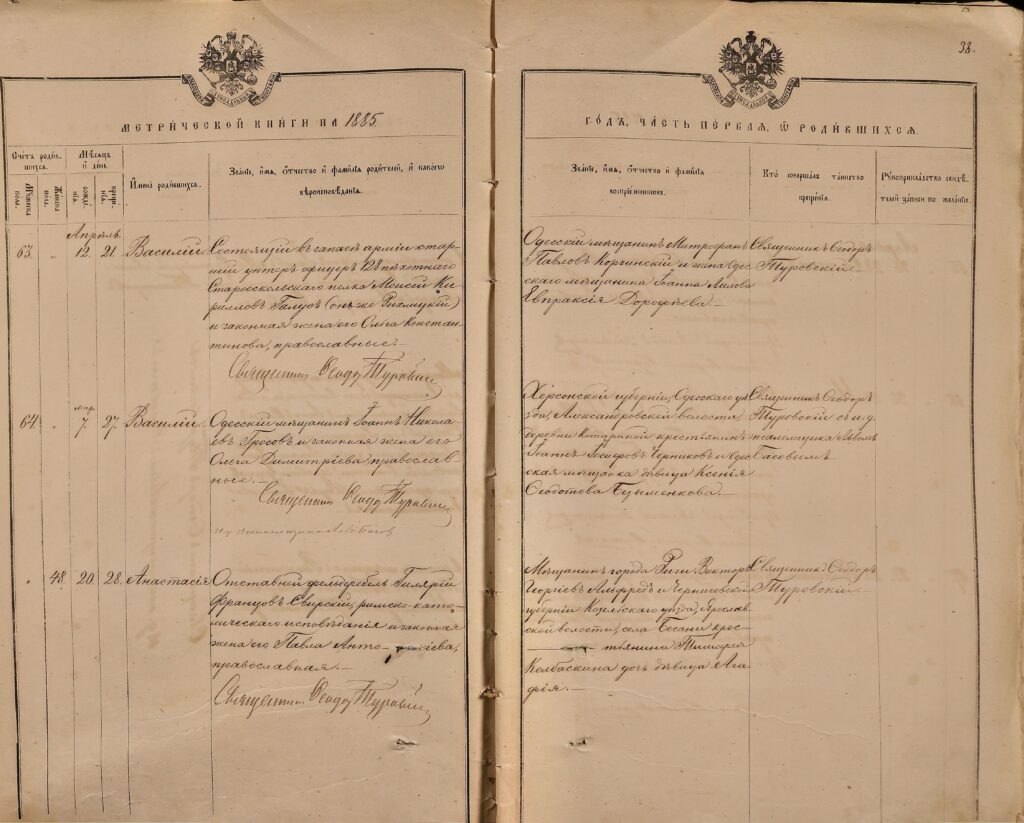 38.
МЕТРИЧЕСКОЙ КНИГИ НА 1885
ГОДЪ, ЧАСТЬ ПЕРВАЯ, Ѡ РОДИВШИХСЯ.
Счетъ родив-
шихся.
Мѣсяцъ
и день.
Имена родившихся.
Званіе, имя, отчество и фамилія родителей, и какого
вѣроисповѣданія.
Мужеска
пола.
Женска
пола.
рожде-
нія.
креще-
нія.
Званіе, имя, отчество и фамилія
воспріемниковъ.
Кто совершалъ таинство
крещенія.
Рукоприкладство свидѣ-
телей записи по желанію.
Апрѣль
63. " 12. 21. Василій
Состоящій въ запасѣ арміи стар-
шій унтеръ офицеръ 128 пѣхотнаго
Старооскольскаго полка Моисей Ки-
рилловъ Галусъ (онъ же)
и законная жена его Ольга Констан-
тинова, православные.-
Священник Ѳеодор Туровский
Одесскій мѣщанинъ Митрофанъ
Павловъ Корчинскій и жена Одес-
скаго мѣщанина Іоанна
Евпраксія Дорофѣева.-
Священникъ Ѳеодоръ
Туровскій
64. " мар. 7. 27. Василій
Одесскій мѣщанинъ Іоаннъ Никола-
евъ Гросовъ и законная жена его
Ольга Димитріева, православ-
ные.-
Священник Ѳеодор Туровский
Херсонской губерніи, Одесскаго уѣ-
зда, Александровской волости,
деревни крестьянинъ
Іоаннъ Іосифовъ Черниковъ и Одес-
ская мѣщанка дѣвица Ксенія
Ѳеодотова Бузыменкова.-
Священникъ Ѳеодоръ
Туровскій съ и. д.
псаломщика
Басовымъ
" 48. 20. 28. Анастасія
Отставной фельдфебель Гилярій
Францовъ Свирскій, римско-като-
лическаго исповѣданія и законная
жена его Павла Антоніева,
православная.-
Священник Ѳеодор Туровский
Мѣщанинъ города Риги Викторъ
Георгіевъ Альфредъ и Черниговской
губерніи Козелецкаго уѣзда, Ярослав-
ской волости, села крес-
тьянина Тимофея
Колбаскина дочь дѣвица Ага-
фія.-
Священникъ Ѳеодоръ
Туровскій.-